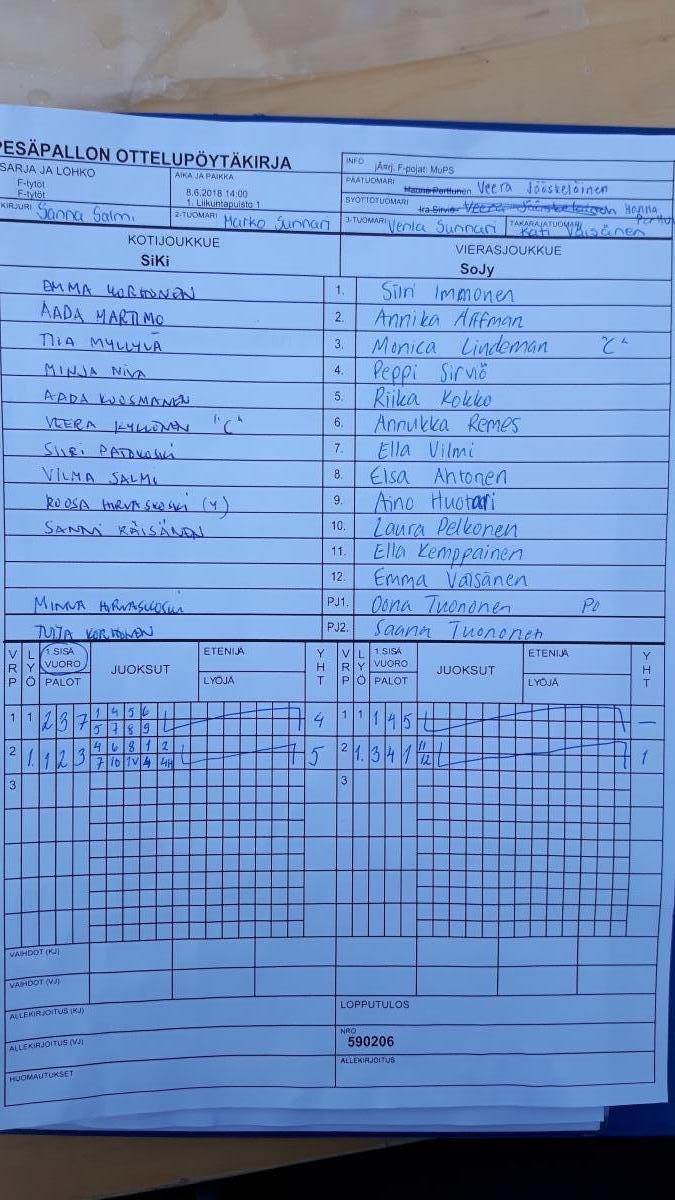 PESÄPALLON OTTELUPÖYTÄKIRJA
SARJA JA LOHKO
F-tytöt
F-tytöt
AIKA JA PAIKKA
8.6.2018 14:00
1. Liikuntapuisto 1
INFO
jÄarj. F-pojat: MuPS
PÄÄTUOMARI Hanna Perttunen Veera Jääskeläinen
SYÖTTÖTUOMARI Ira Sirviö Veera Jääskeläinen Hanna
KIRJURI Sanna Salmi
2-TUOMARI Marko Sunnari
3-TUOMARI Venla Sunnari
TAKARAJATUOMARI Kati Väisänen
KOTIJOUKKUE
SiKi
VIERASJOUKKUE
SoJy
EMMA KORHONEN 1. Siiri Immonen
AADA MARTIMO 2. Annika Äffman
TIIA MYLLYLÄ 3. Monica Lindeman "C"
MINJA NIVA 4. Peppi Sirviö
AADA KUOSMANEN 5. Riika Kokko
VEERA KYLLÖNEN "C" 6. Annukka Remes
SIIRI PATOKOSKI 7. Ella Vilmi
VILMA SALMI 8. Elsa Ahtonen
ROOSA HIRVASKOSKI (Y) 9. Aino Huotari
SANNI RÄISÄNEN 10. Laura Pelkonen
11. Ella Kemppainen
12. Emma Väisänen
MINNA HIRVASKOSKI PJ1. Oona Tuononen PO
TUIJA KORHONEN PJ2. Saana Tuononen
VRP LYÖ 1.SISÄ VUORO PALOT JUOKSUT ETENIJÄ LYÖJÄ YHT VRP LYÖ 1.SISÄ VUORO PALOT JUOKSUT ETENIJÄ LYÖJÄ YHT
1 1 2 3 7 1 4 5 6 4 1 1 1 4 5 —
5 7 8 9
2 1. 1 2 3 4 6 8 1 2 5 2 1. 3 4 1 11 1
7 10 1V 4 4H 12
3 3
VAIHDOT (KJ)
VAIHDOT (VJ)
ALLEKIRJOITUS (KJ)
LOPPUTULOS
ALLEKIRJOITUS (VJ)
NRO
590206
HUOMAUTUKSET
ALLEKIRJOITUS